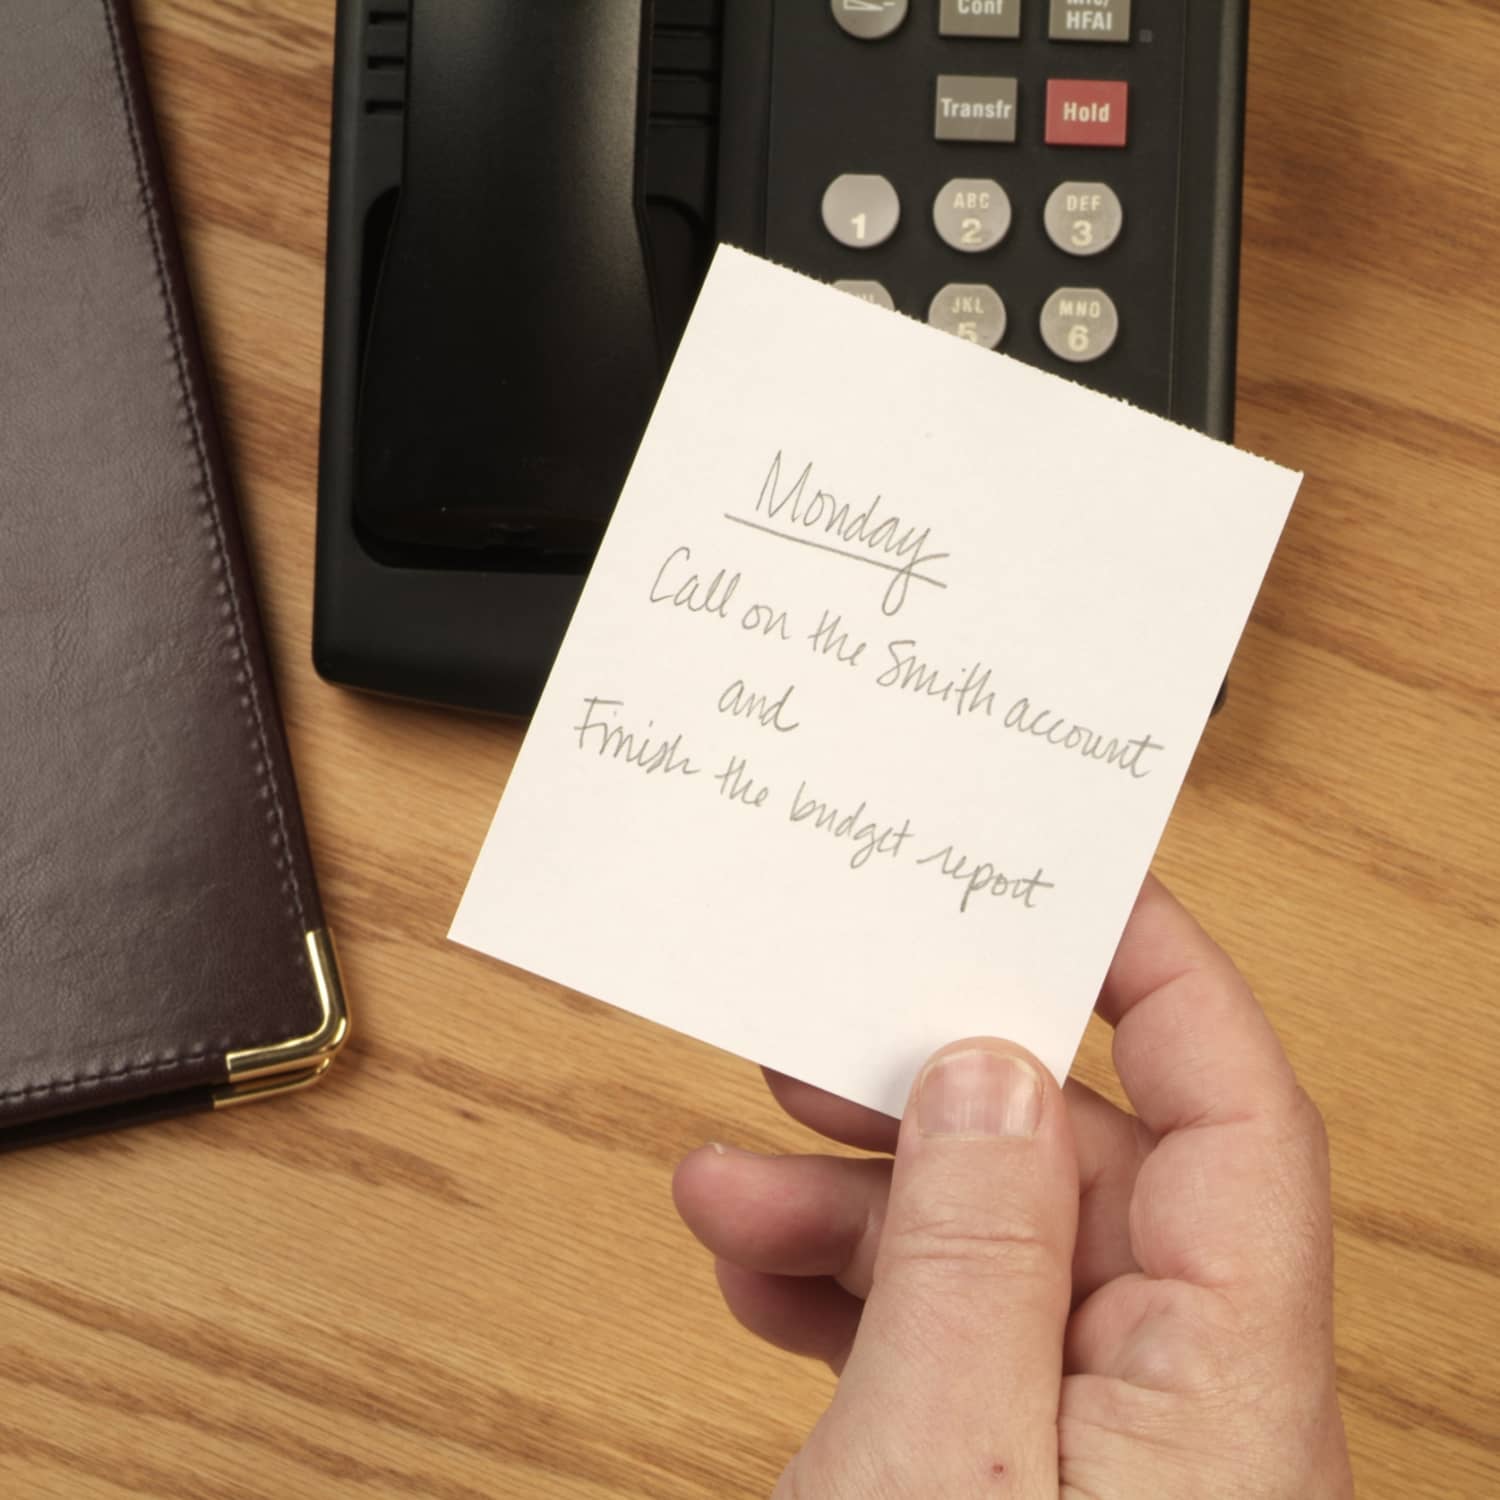 Conf
Mic/
HFAI
Transfr
Hold
1
ABC
2
DEF
3
JKL
5
MNO
6
Monday
Call on the Smith account
and
Finish the budget report